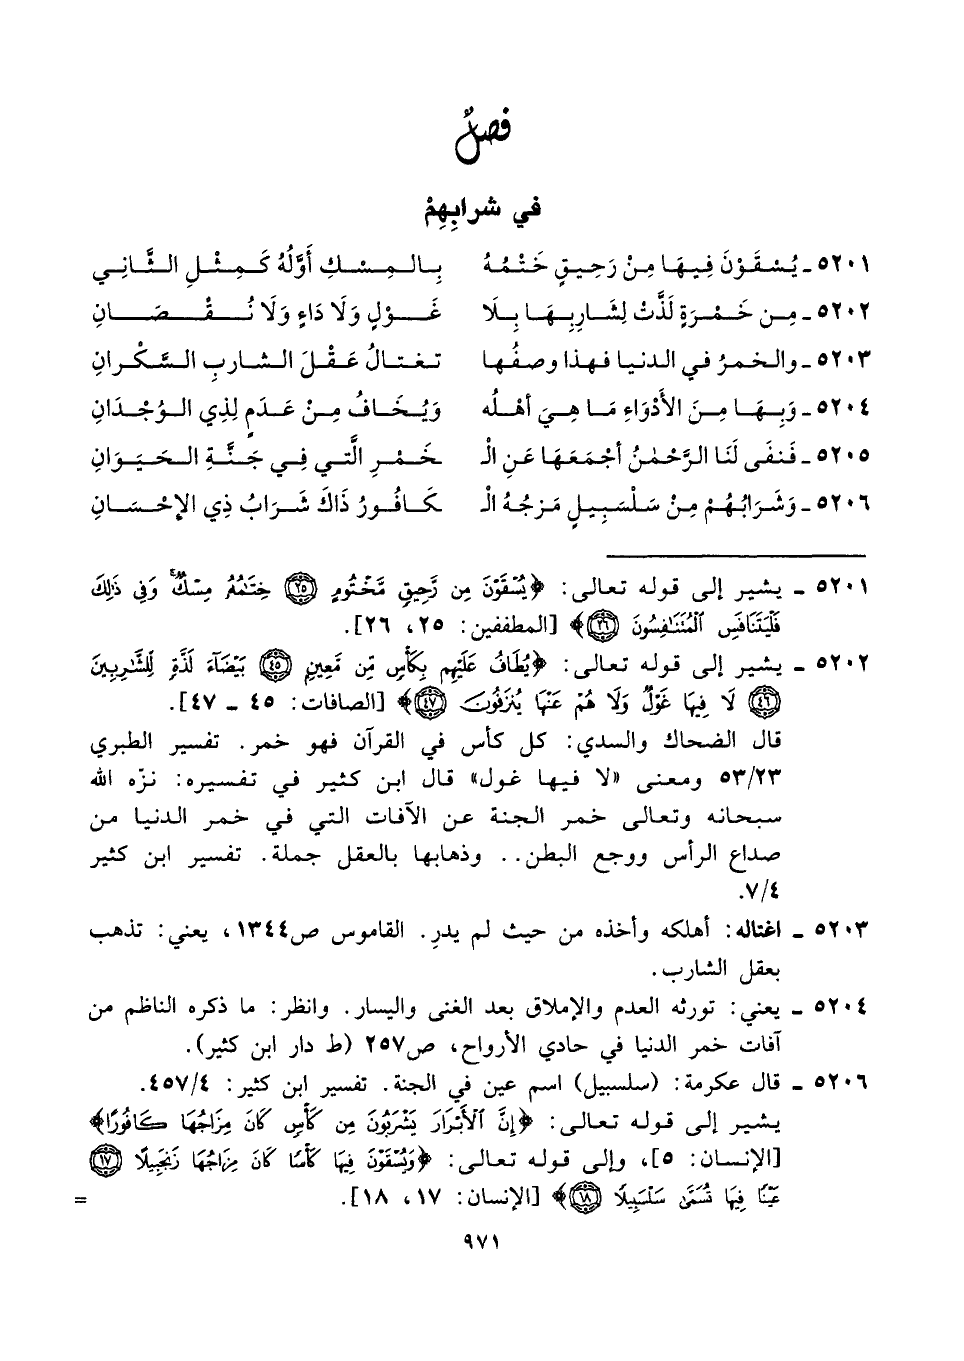 فصلٌ
في شرابِهِمْ
٥٢٠١ ـ يُسْقَوْنَ فِيهَا مِنْ رَحِيقٍ خَتْمُهُ بِالمِسْكِ أَوَّلُهُ كَمِثْلِ الثَّانِي
٥٢٠٢ ـ مِن خَمْرَةٍ لَذَّتْ لِشَارِبِهَا بِلَا غَوْلٍ وَلَا دَاءٍ وَلَا نُقْصَانِ
٥٢٠٣ ـ والخمرُ في الدنيا فهذا وصفُها تغتالُ عقْلَ الشاربِ السَّكْرانِ
٥٢٠٤ ـ وَبِهَا مِنَ الأَدْوَاءِ مَا هِيَ أهْلُه وَيُخَافُ مِنْ عَدَمٍ لِذِي الوُجْدَانِ
٥٢٠٥ ـ فَنفَى لَنَا الرَّحْمٰنُ أجْمَعَهَا عَنِ الْـ ـخَمْرِ الَّتي فِي جَنَّةِ الحَيَوَانِ
٥٢٠٦ ـ وَشَرَابُهُمْ مِنْ سَلْسَبِيلٍ مَزجُهُ الْـ ـكَافُورُ ذَاكَ شَرَابُ ذِي الإحْسَانِ
٥٢٠١ ـ يشير إلى قوله تعالى: ﴿يُسْقَوْنَ مِن رَّحِيقٍ مَّخْتُومٍ ۝٢٥ خِتَٰمُهُۥ مِسْكٌۚ وَفِي ذَٰلِكَ
فَلْيَتَنَافَسِ ٱلْمُتَنَٰفِسُونَ ۝٢٦﴾ [المطففين: ٢٥، ٢٦].
٥٢٠٢ ـ يشير إلى قوله تعالى: ﴿يُطَافُ عَلَيْهِم بِكَأْسٍ مِّن مَّعِينٍ ۝٤٥ بَيْضَآءَ لَذَّةٍ لِّلشَّٰرِبِينَ
۝٤٦ لَا فِيهَا غَوْلٌ وَلَا هُمْ عَنْهَا يُنزَفُونَ ۝٤٧﴾ [الصافات: ٤٥ ـ ٤٧].
قال الضحاك والسدي: كل كأس في القرآن فهو خمر. تفسير الطبري
٥٣/٢٣ ومعنى «لا فيها غول» قال ابن كثير في تفسيره: نزّه الله
سبحانه وتعالى خمر الجنة عن الآفات التي في خمر الدنيا من
صداع الرأس ووجع البطن.. وذهابها بالعقل جملة. تفسير ابن كثير
٧/٤.
٥٢٠٣ ـ اغتاله: أهلكه وأخذه من حيث لم يدرِ. القاموس ص١٣٤٤، يعني: تذهب
بعقل الشارب.
٥٢٠٤ ـ يعني: تورثه العدم والإملاق بعد الغنى واليسار. وانظر: ما ذكره الناظم من
آفات خمر الدنيا في حادي الأرواح، ص٢٥٧ (ط دار ابن كثير).
٥٢٠٦ ـ قال عكرمة: (سلسبيل) اسم عين في الجنة. تفسير ابن كثير: ٤٥٧/٤.
يشير إلى قوله تعالى: ﴿إِنَّ ٱلْأَبْرَارَ يَشْرَبُونَ مِن كَأْسٍ كَانَ مِزَاجُهَا كَافُورًا﴾
[الإنسان: ٥]، وإلى قوله تعالى: ﴿وَيُسْقَوْنَ فِيهَا كَأْسًا كَانَ مِزَاجُهَا زَنجَبِيلًا ۝١٧
عَيْنًا فِيهَا تُسَمَّىٰ سَلْسَبِيلًا ۝١٨﴾ [الإنسان: ١٧، ١٨]. =
٩٧١